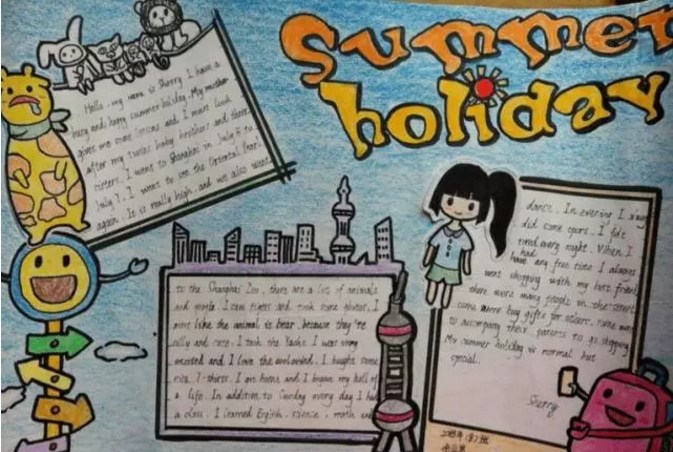 Summer
holiday
Hello, my name is Sherry. I have a
busy and happy summer holiday. My mother
gives me some lessons and I must look
after my twins baby brothers and
sisters. I went to Shanghai in July 5 to
July 7. I went to see the Oriental Pearl
again. It is really high. and we also went
to the Shanghai Zoo, there are a lot of animals
and people. I saw tigers and took some photos. I
like the animal is bear, because they're
silly and cute. I took the I was very
excited and I love the I bought some
T-shirts. I am home and I began my hell of
a life. In addition to Sunday every day I had
a class. I learned English, science, math and
dance. In evening I
did some sports. I felt
tired every night. When I
had
have any free time I always
went shopping with my best friend
there were many people in the street
some were buy gifts for others, some were
to accompany their parents to go shopping
My summer holiday is normal but
special.
Sherry